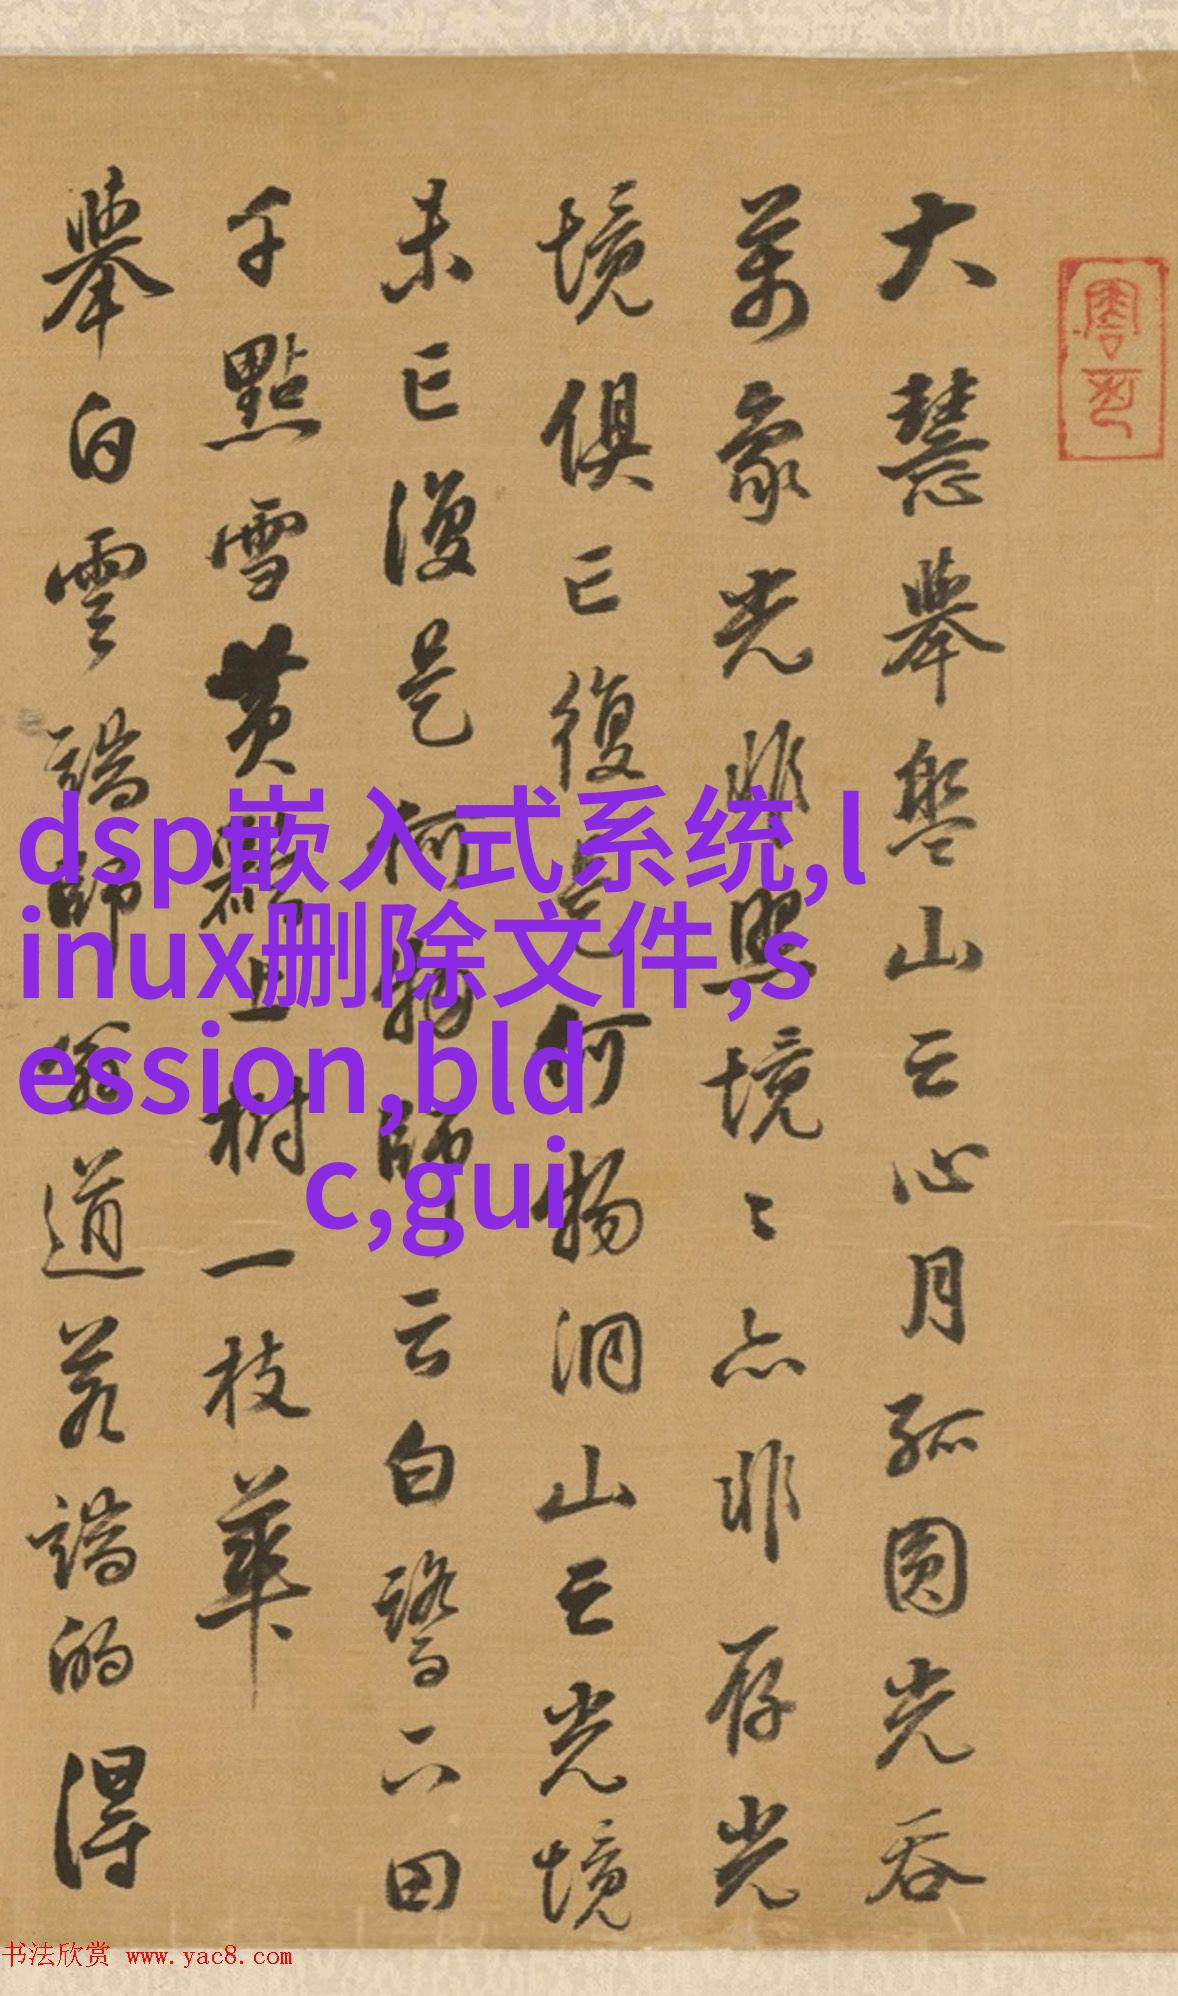 大慧舉盤山云心月孤圓光吞
萬象光非照境〻亦非存光
境俱亡復是何物洞山云光境
未亡復是何物師云白鷺下田
千點雪黃鸝上樹一枝華
舉白雲端師翁道若端的得
dsp嵌入式系统,l
inux删除文件,s
ession,bld
c,gui
书法欣赏 www.yac8.com